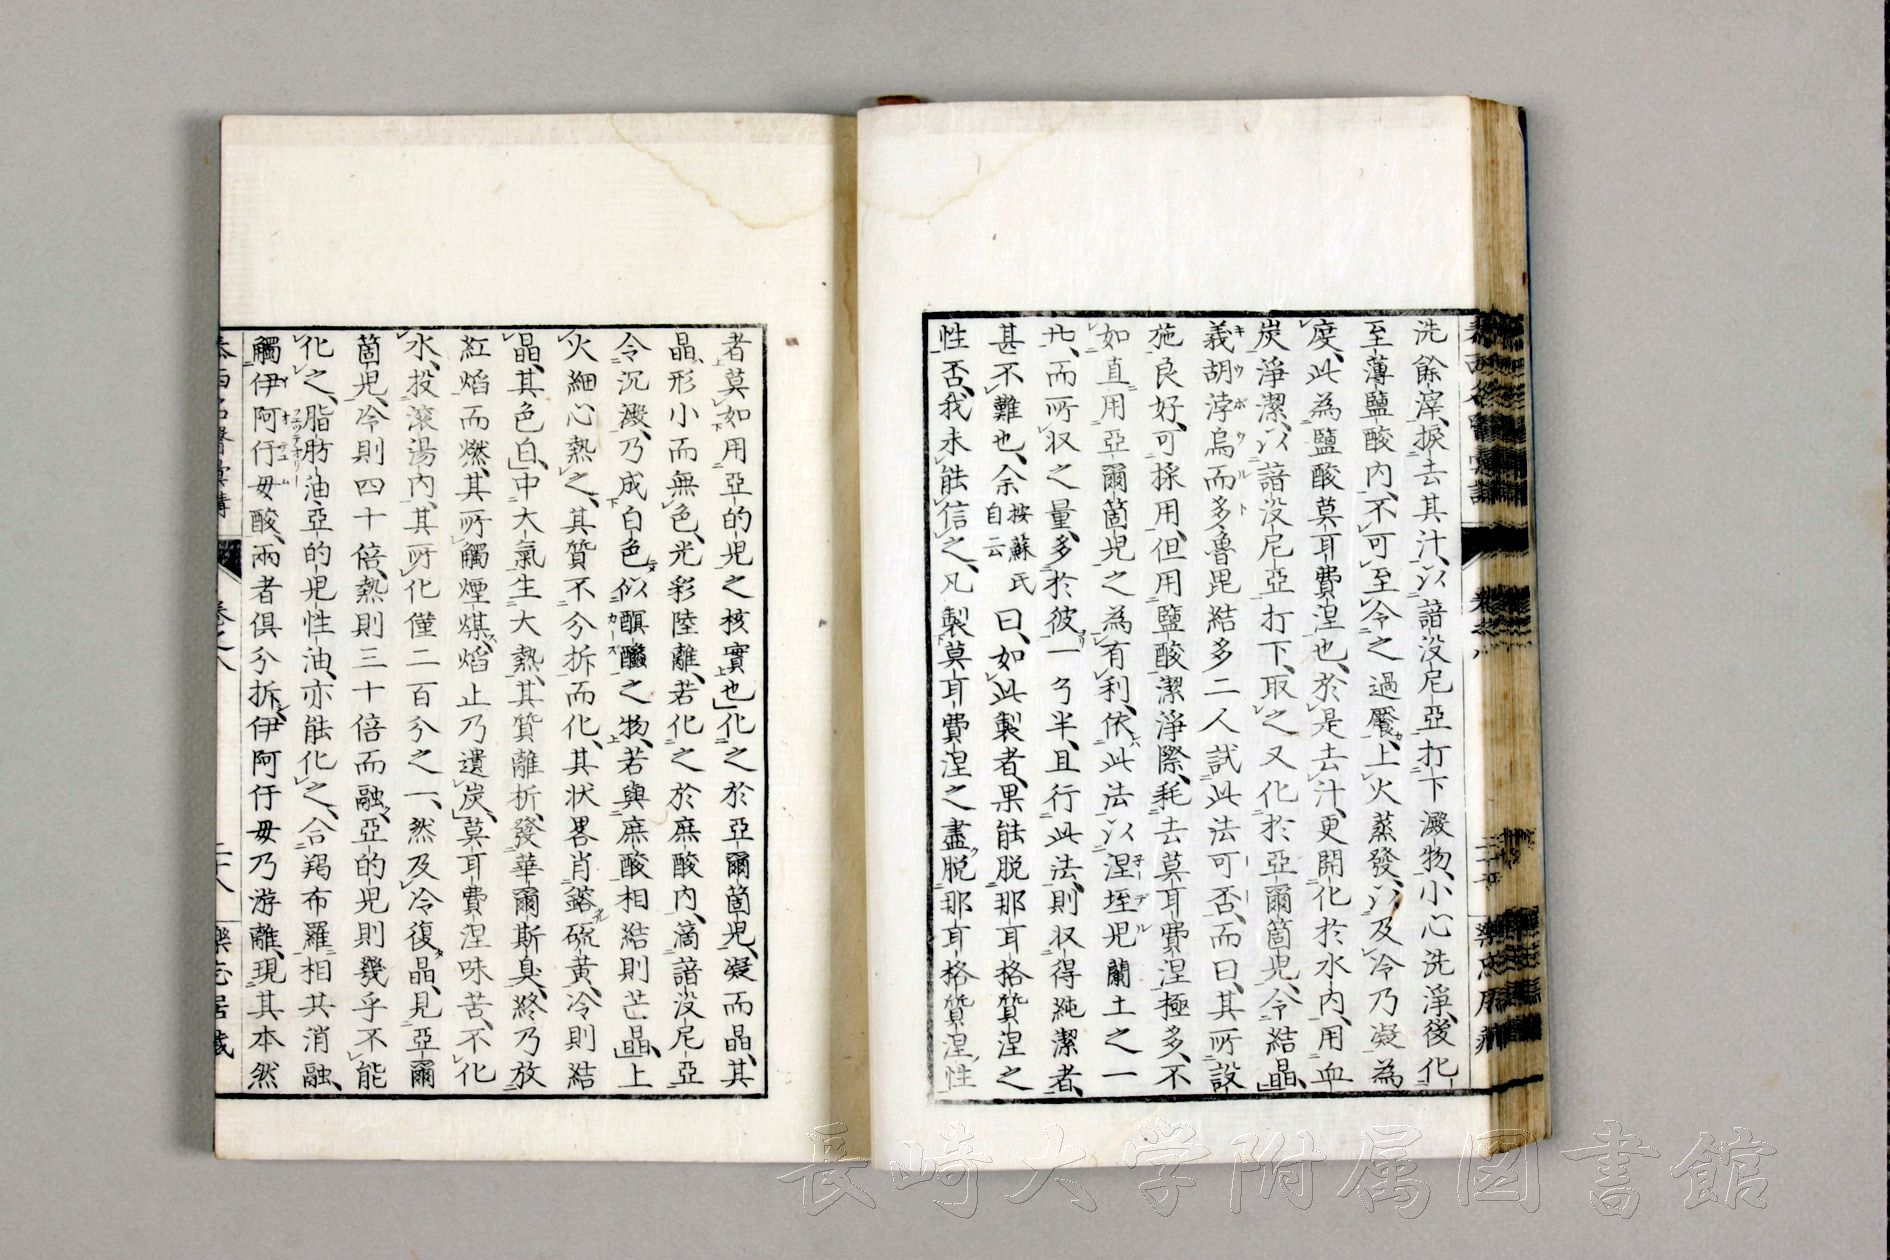 洗餘滓、捩去其汁、以諳沒尼亞打下澱物、小心洗淨、後化
至薄鹽酸內、不可至令之過饜、上火蒸發、以及冷乃凝為
度、此為鹽酸莫耳費涅也、於是去汁、更開化於水內、用血
炭淨潔、以諳沒尼亞打下、取之又化於亞爾箇兒、令結晶、」
義胡浡烏而多魯毘結多二人試此法可否、而曰、其所設
施良好、可採用、但用鹽酸潔淨際、耗去莫耳費涅極多、不
如直用亞爾箇兒之為有利、依此法以涅垤兒蘭土之一
氏、而所収之量、多於彼一弓半、且行此法、則収得純潔者、
甚不難也、余按蘇氏自云曰、如此製者、果能脱那耳格質涅之
性否、我未能信之、凡製莫耳費涅之盡脱那耳格質涅性
者莫如用亞的兒之核實也」化之於亞爾箇兒、凝而晶、其
晶、形小而無色、光彩陸離、若化之於庶酸內、滴諳沒尼亞
令沉澱、乃成白色似酛釀之物、若與庶酸相結則芒晶、」上
火細心熱之、其質不分拆而化、其状畧肖鎔硫黄、冷則結
晶、其色白、」中大氣生大熱、其質離析、發華爾斯臭、終乃放
紅焰而燃、其所觸煙煤焰止乃遺炭、」莫耳費涅味苦、不化
水、投滾湯內、其所化僅二百分之一、然及冷復晶、見亞爾
箇兒、冷則四十倍、熱則三十倍而融、亞的兒則幾乎不能
化之、脂肪油亞的兒性油、亦能化之、合羯布羅相其消融、
觸伊阿仔毋酸、兩者俱分拆、伊阿仔毋乃游離、現其本然
卷之八
二十八
樂志居藏
長崎大学附属図書館